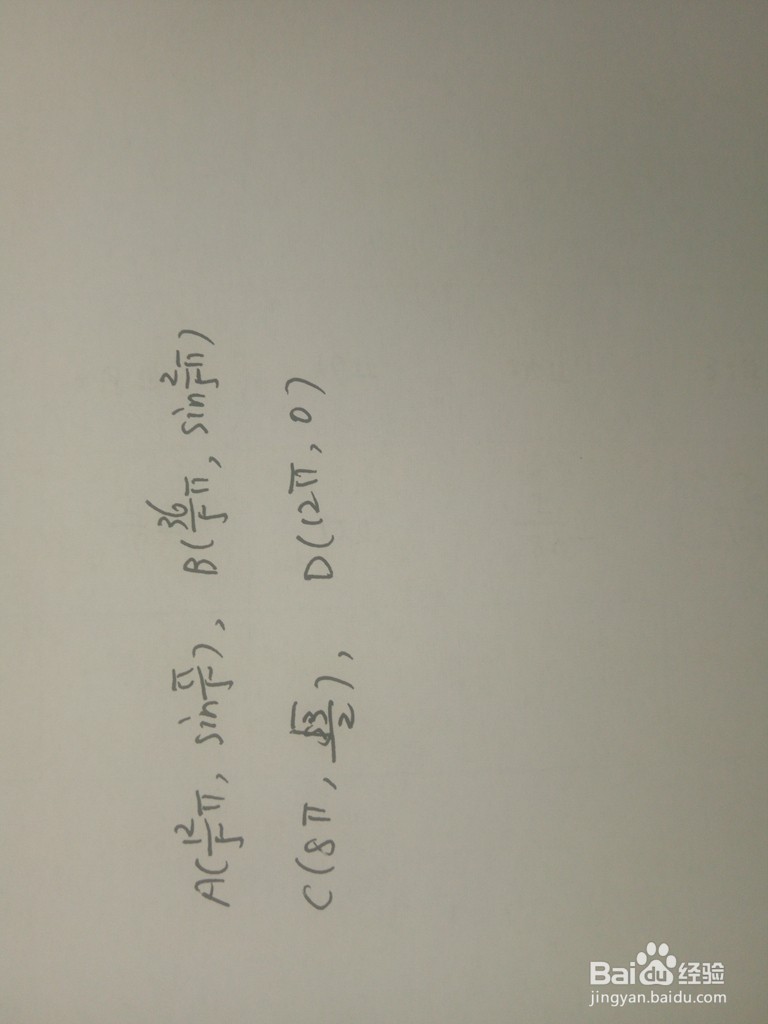 A(12/5 π, sin π/5), B(36/5 π, sin 2/5 π)
C(8π, √3/2), D(12π, 0)
Baidu经验
jingyan.baidu.com